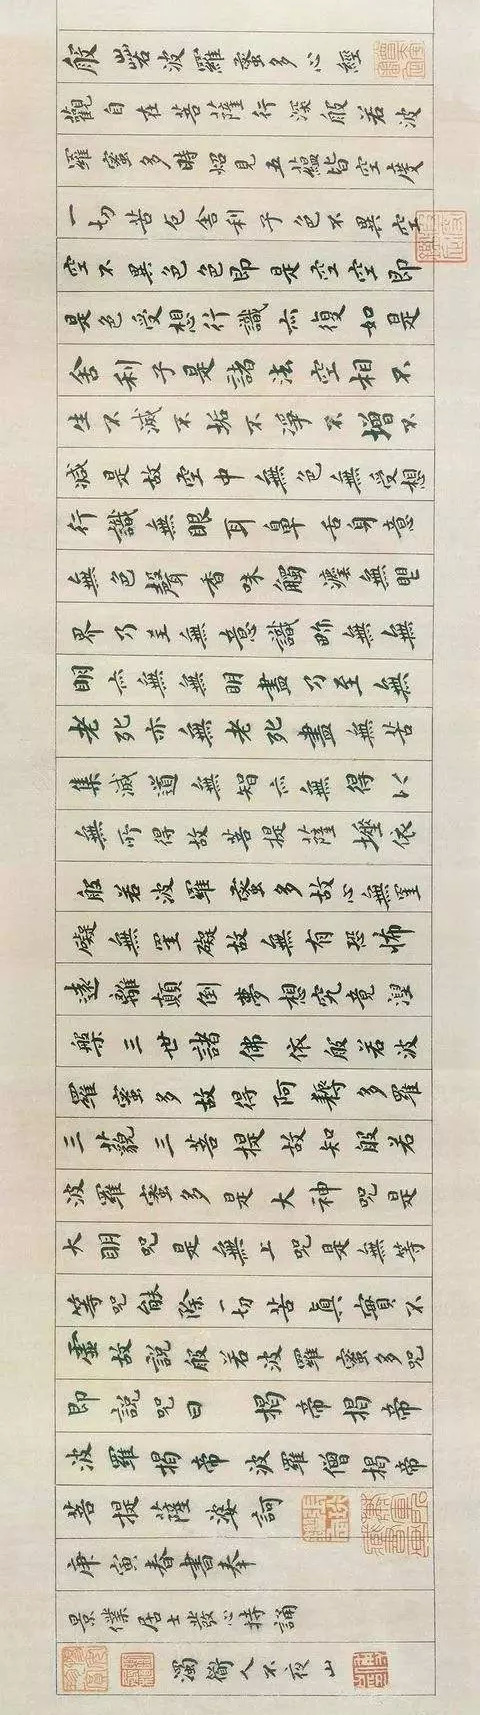 般若波羅蜜多心經
觀自在菩薩行深般若波
羅蜜多時炤見五蘊皆空度
一切苦厄舍利子色不異空
空不異色色即是空空即
是色受想行識亦復如是
舍利子是諸法空相不
生不滅不垢不淨不增不
減是故空中無色無受想
行識無眼耳鼻舌身意
無色聲香味觸法無眼
界乃至無意識界無無
明亦無無明盡乃至無
老死亦無老死盡無苦
集滅道無智亦無得以
無所得故菩提薩埵依
般若波羅蜜多故心無罣
礙無罣礙故無有恐怖
遠離顛倒夢想究竟涅
槃三世諸佛依般若波
羅蜜多故得阿耨多羅
三藐三菩提故知般若
波羅蜜多是大神咒是
大明咒是無上咒是無等
等咒能除一切苦真實不
虛故說般若波羅蜜多咒
即說咒曰 揭帝揭帝
波羅揭帝波羅僧揭帝
菩提薩婆訶
庚寅春書奉
景僕居士發心持誦
濁衡人不夜山